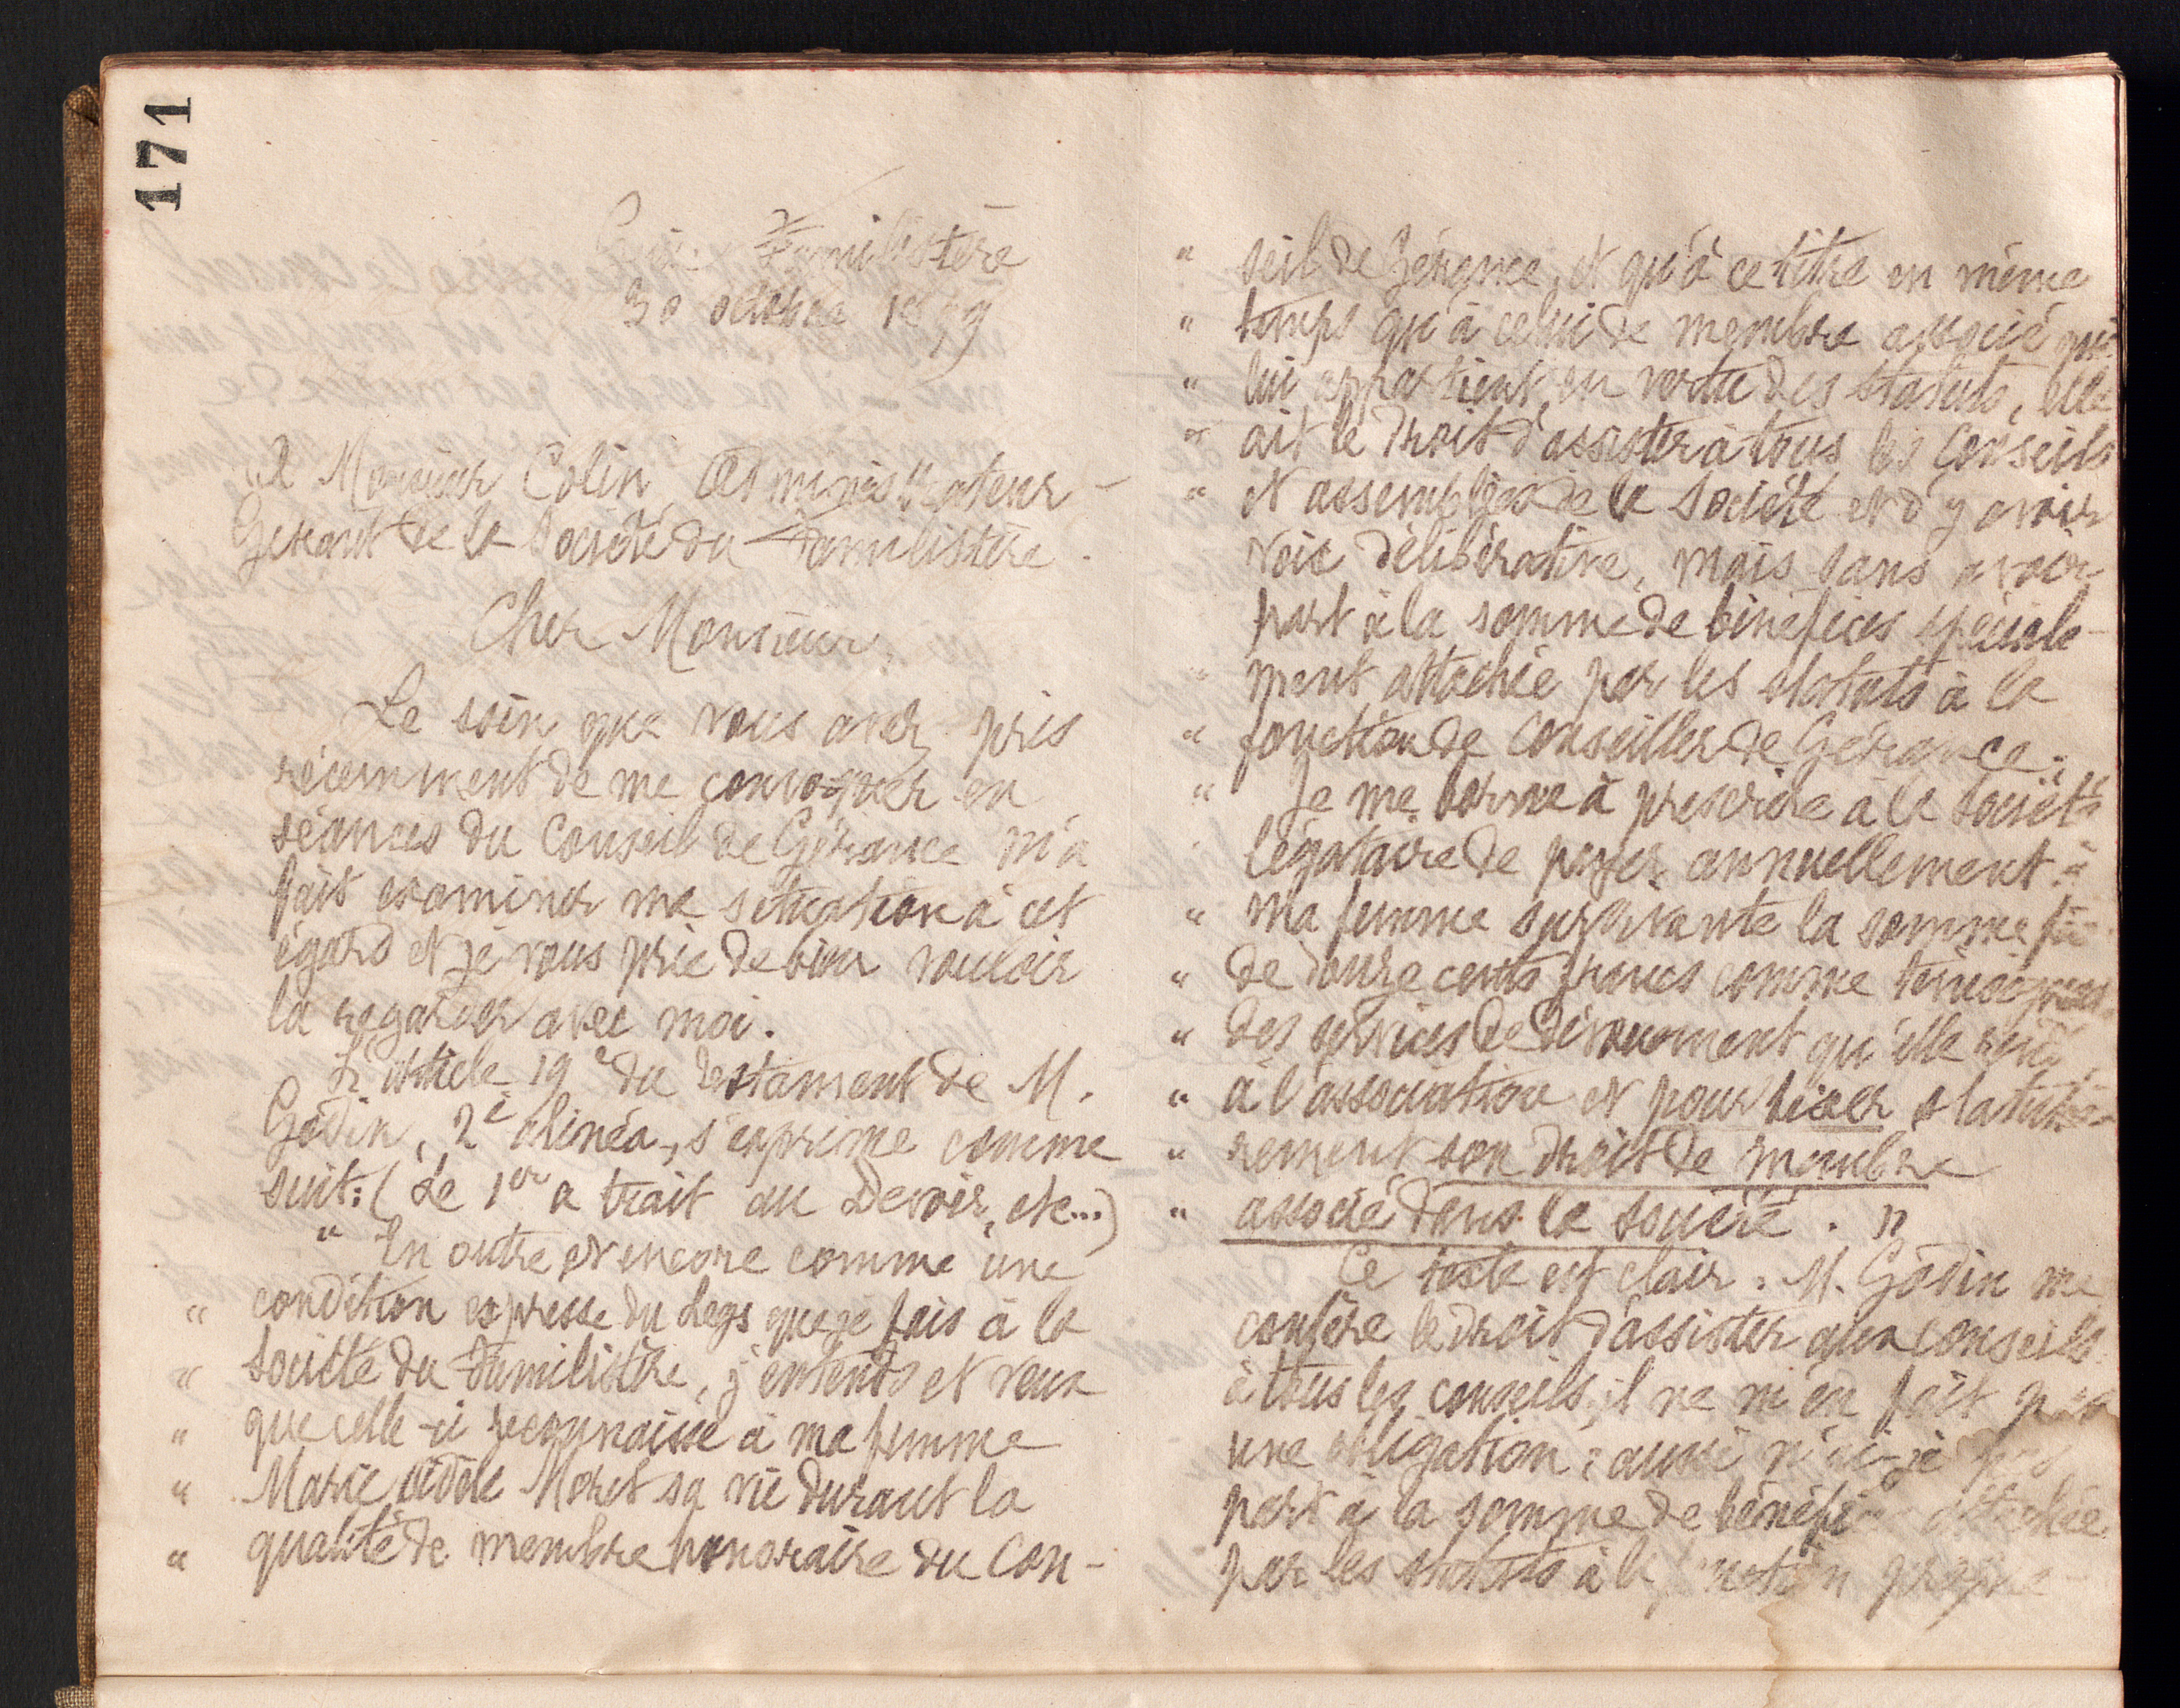 171
Familistère
30 octobre 1899
A Monsieur Colin, Administrateur-
Gérant de la Société du Familistère.
Cher Monsieur,
Le soin que vous avez pris
récemment de me convoquer en
séances du Conseil de Gérance m'a
fait examiner ma situation à cet
égard et je vous prie de bien vouloir
la regarder avec moi.
L'article 19e du testament de M.
Godin, 2e alinéa, s'exprime comme
suit : (Le 1er a trait au Devoir, etc...)
" En outre et encore comme une
" condition expresse du legs que je fais à la
" Société du Familistère, j'entends et veux
" que celle-ci reconnaisse à ma femme
" Marie Adèle Moret sa vie durant la
" qualité de membre honoraire du Con-
" seil de Gérance, et qu'à ce titre en même
" temps qu'à celui de membre associé qui
" lui appartient en vertu des statuts, elle
" ait le droit d'assister à tous les Conseils
" et assemblées de la Société et d'y avoir
voix délibérative, mais sans avoir
part à la somme de bénéfices spéciale-
" ment attachée par les statuts à la
" fonction de Conseiller de Gérance.
" Je me borne à prescrire à la Société
" légataire de payer annuellement à
" ma femme survivante la somme
" de douze cents francs comme
" des services de dévouement qu'elle
" à l'association et pour fixer
" rement son droit de membre
" associé dans la Société. "
Ce texte est clair. M. Godin me
confère le droit d'assister aux conseils
à tous les conseils, il ne m'en fait pas
une obligation ; aussi n'ai-je pas
part à la somme de bénéfices attachée
par les statuts à la fonction